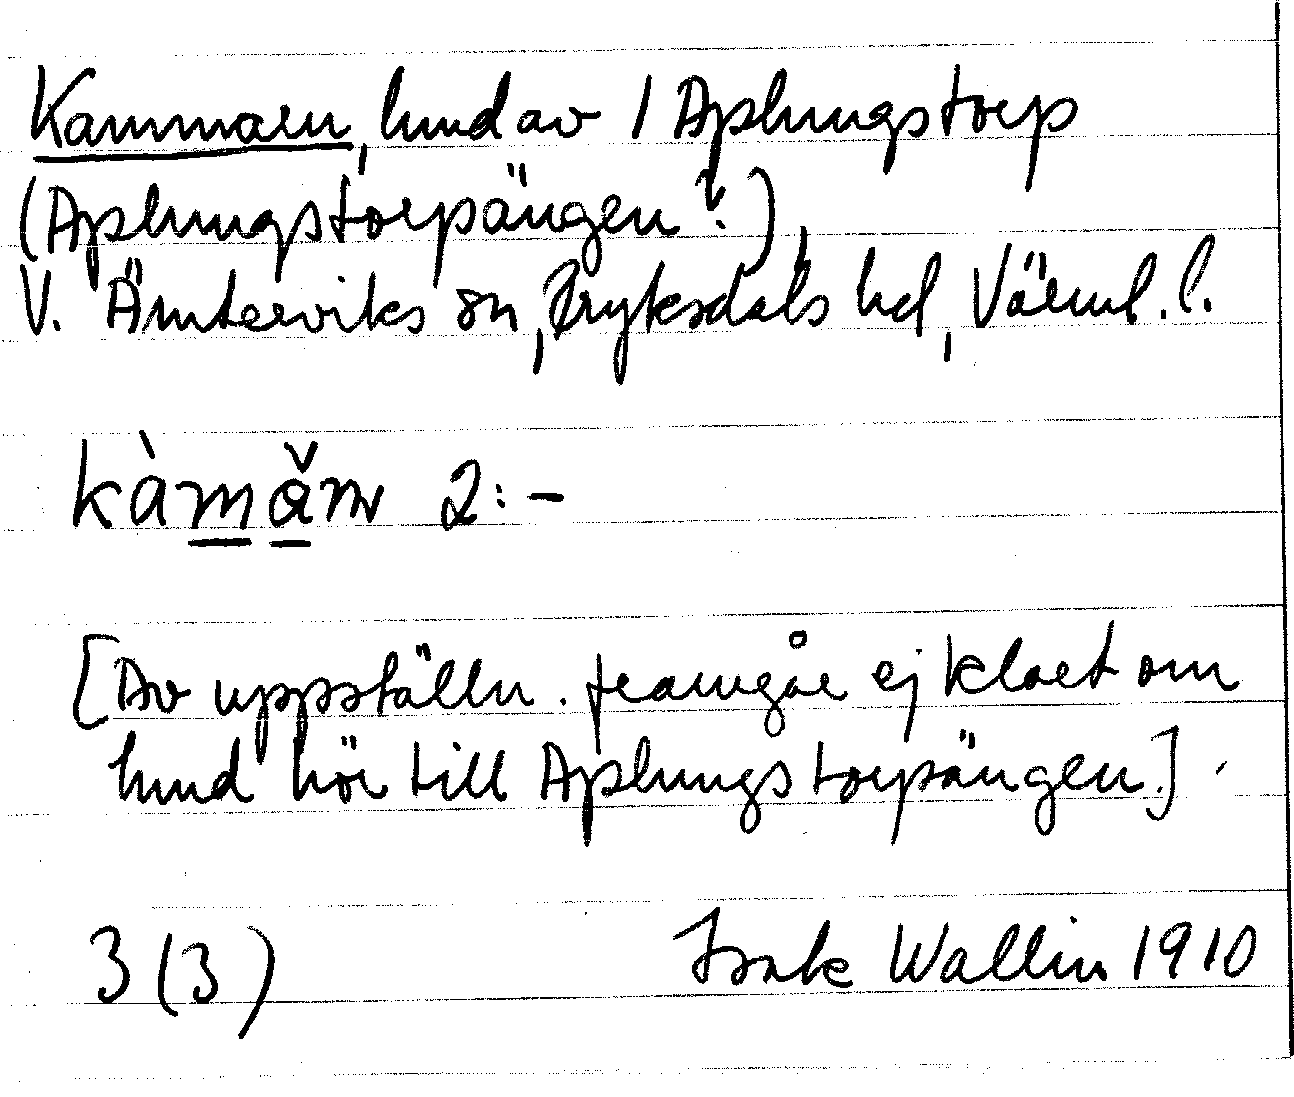 Kammarn, hmd av 1 Aplungstorp
(Aplungstorpängen?),
V. Ämterviks sn, Fryksdals hd, Värml. l.
kàmǎṇ 2:-
[Av uppställn. framgår ej klart om
hmd hör till Aplungstorpängen.]
3 (3) Isak Wallin 1910